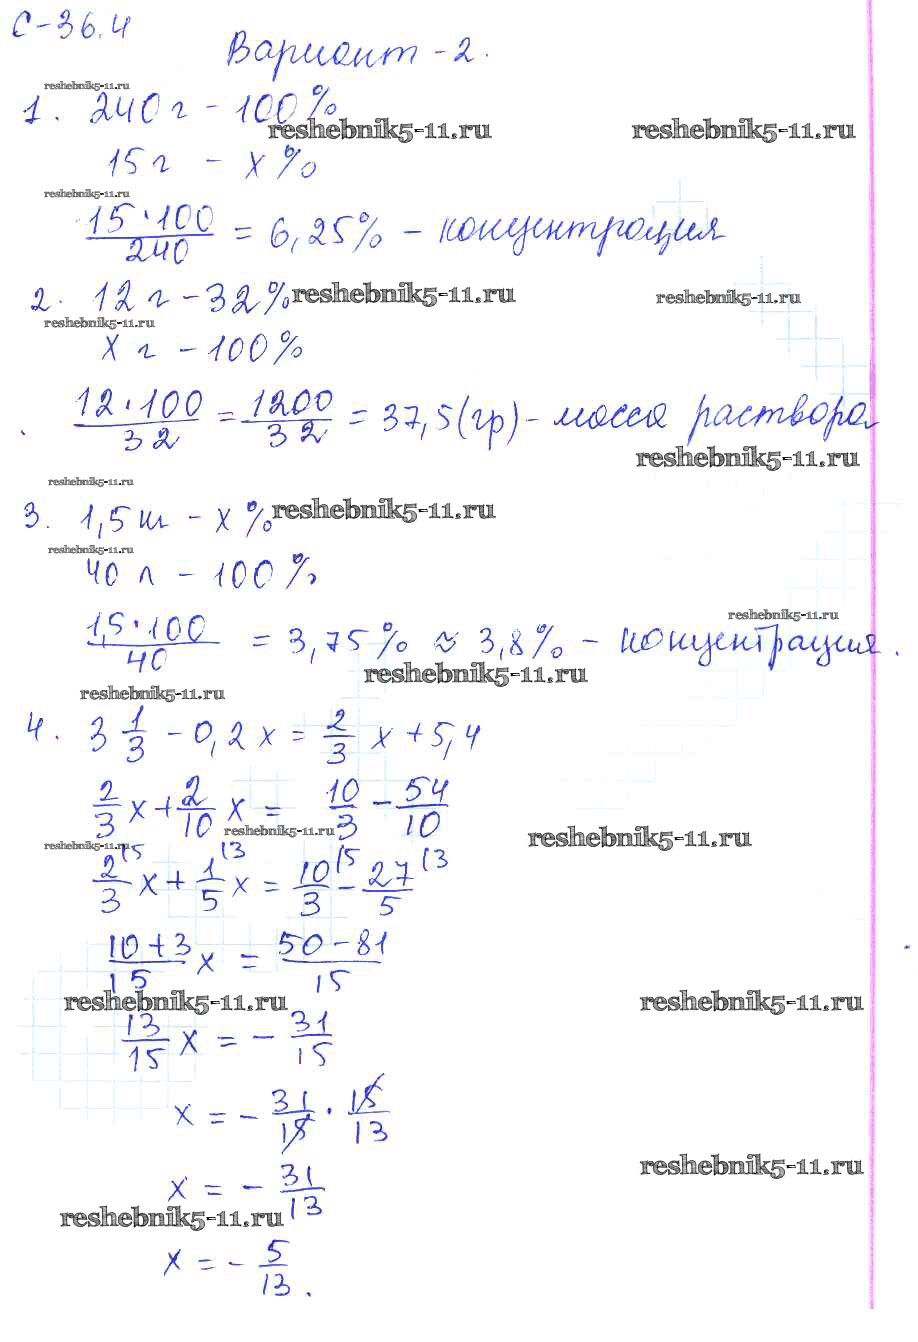 С-36.4
Вариант-2.
reshebnik5-11.ru
1. 240 г - 100%
reshebnik5-11.ru reshebnik5-11.ru
15 г - x%
reshebnik5-11.ru
15·100/240 = 6,25% - концентрация
2. 12 г - 32% reshebnik5-11.ru reshebnik5-11.ru
reshebnik5-11.ru
x г - 100%
12·100/32 = 1200/32 = 37,5(гр) - масса раствора
reshebnik5-11.ru
reshebnik5-11.ru
3. 1,5 ш - x% reshebnik5-11.ru
reshebnik5-11.ru
40 л - 100%
reshebnik5-11.ru
1,5·100/40 = 3,75% ≈ 3,8% - концентрация.
reshebnik5-11.ru
reshebnik5-11.ru
4. 3 1/3 - 0,2x = 2/3 x + 5,4
2/3 x + 2/10 x = 10/3 - 54/10
reshebnik5-11.ru reshebnik5-11.ru
reshebnik5-11.ru
2/3 (5 x + 1/5 (3 x = 10/3 (5 - 27/5 (3
10+3/15 x = 50-81/15
reshebnik5-11.ru reshebnik5-11.ru
13/15 x = - 31/15
x = - 31/15 · 15/13
reshebnik5-11.ru
x = - 31/13
reshebnik5-11.ru
x = - 5/13.